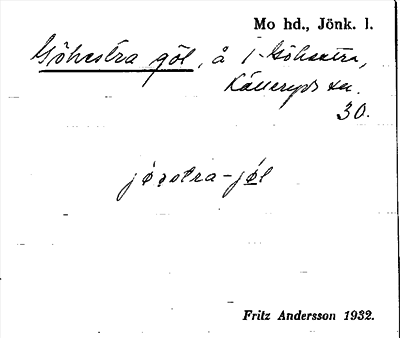 Mo hd., Jönk. l.
Göhestra göl, å i Göhestra,
Källeryds sn.
30.
jöstra-jöl
Fritz Andersson 1932.